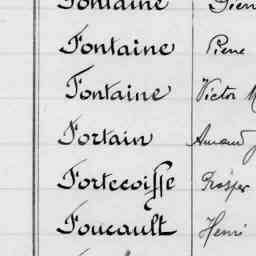 Fontaine
Fontaine Pierre
Fontaine Victor
Fortain Amand
Fortecoiffe Prosper
Foucault Henri